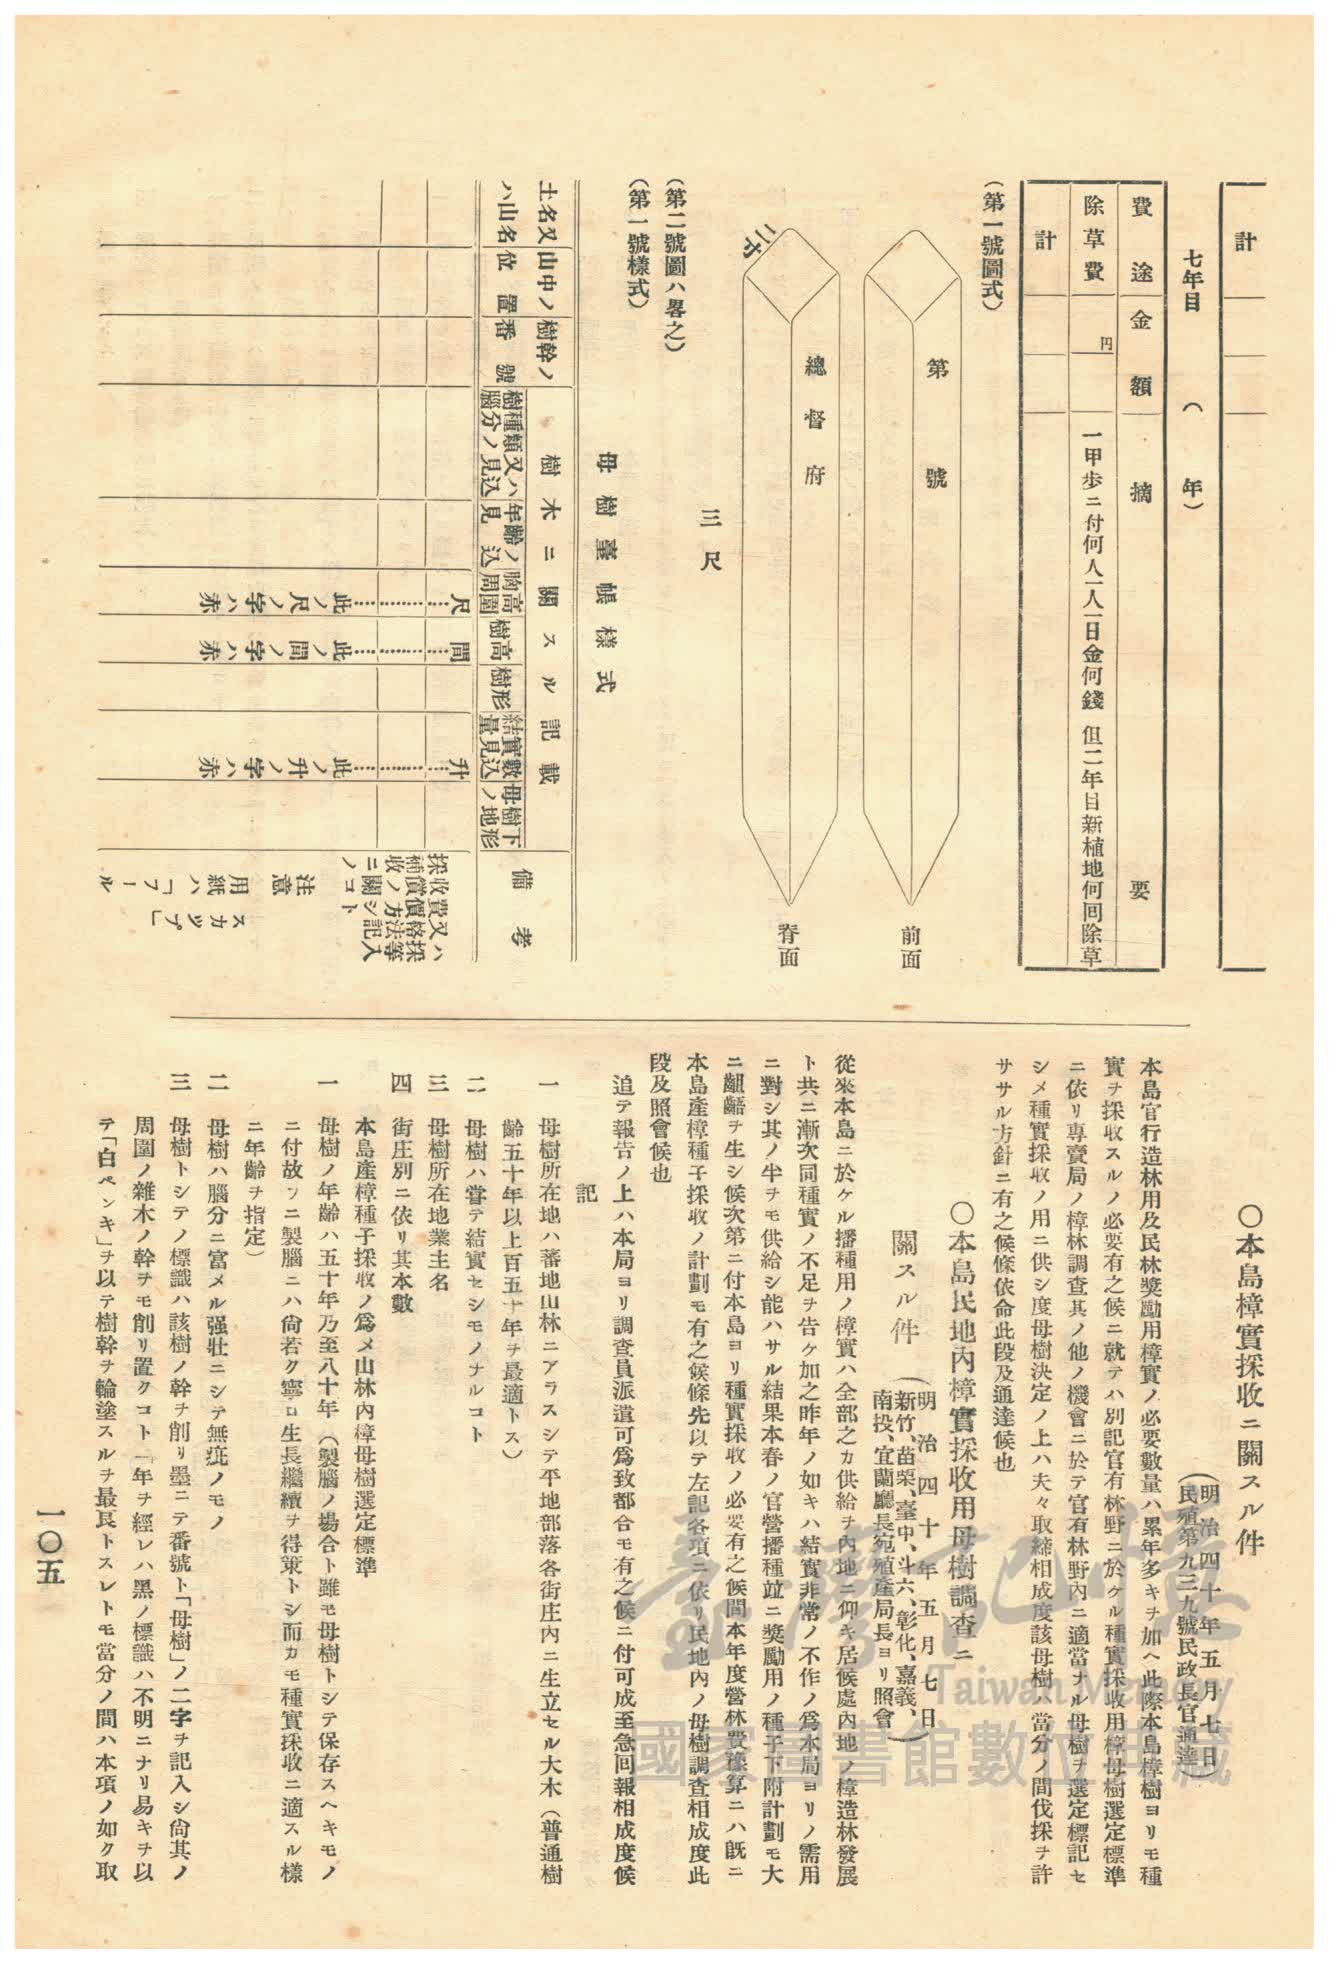 計
七年目 （ 年）
費途 金額 摘要
除草費 円 一甲歩ニ付何人一人一日金何錢 但二年目新植地何囘除草
計
（第一號圖式）
第號
前面
總督府
脊面
二寸
三尺
（第二號圖ハ畧之）
（第一號樣式）
母樹臺帳樣式
土名又ハ山名
山中ノ位置
樹幹ノ番號
樹木ニ關スル記載
樹種類又ハ腦分ノ見込
年齡ノ見込
胸高周圍
樹高
樹形
結實數量見込
母樹下ノ地形
備考
尺 此ノ尺ノ字ハ赤
間 此ノ間ノ字ハ赤
升 此ノ升ノ字ハ赤
採收費又ハ補償價格採收ノ方法等ニ關シ記入ノコト
注意
用紙ハ「フールスカップ」
〇本島樟實採收ニ關スル件
（明治四十年五月七日
民殖第九三九號民政長官通達）
本島官行造林用及民林獎勵用樟實ノ必要數量ハ累年多キヲ加ヘ此際本島樟樹ヨリモ種
實ヲ採收スルノ必要有之候ニ就テハ別記官有林野ニ於ケル種實採收用樟母樹選定標準
ニ依リ專賣局ノ樟林調査其ノ他ノ機會ニ於テ官有林野內ニ適當ナル母樹ヲ選定標記セ
シメ種實採收ノ用ニ供シ度母樹決定ノ上ハ夫々取締相成度該母樹ハ當分ノ間伐採ヲ許
ササル方針ニ有之候條依命此段及通達候也
〇本島民地內樟實採收用母樹調査ニ
關スル件
（明治四十年五月七日
新竹、苗栗、臺中、斗六、彰化、嘉義、
南投、宜蘭廳長宛殖產局長ヨリ照會）
從來本島ニ於ケル播種用ノ樟實ハ全部之カ供給ヲ內地ニ仰キ居候處內地ノ樟造林發展
ト共ニ漸次同種實ノ不足ヲ告ケ加之昨年ノ如キハ結實非常ノ不作ノ爲本局ヨリノ需用
ニ對シ其ノ半ヲモ供給シ能ハサル結果本春ノ官營播種竝ニ獎勵用ノ種子下附計劃モ大
ニ齟齬ヲ生シ候次第ニ付本島ヨリ種實採收ノ必要有之候間本年度營林費豫算ニハ既ニ
本島產樟種子採收ノ計劃モ有之候條先以テ左記各項ニ依リ民地內ノ母樹調査相成度此
段及照會候也
追テ報告ノ上ハ本局ヨリ調査員派遣可爲致都合モ有之候ニ付可成至急囘報相成度候
記
一 母樹所在地ハ蕃地山林ニアラスシテ平地部落各街庄內ニ生立セル大木（普通樹
齡五十年以上百五十年ヲ最適トス）
二 母樹ハ嘗テ結實セシモノナルコト
三 母樹所在地業主名
四 街庄別ニ依リ其本數
本島產樟種子採收ノ爲メ山林內樟母樹選定標準
一 母樹ノ年齡ハ五十年乃至八十年（製腦ノ場合ト雖モ母樹トシテ保存スヘキモノ
ニ付故ラニ製腦ニハ尙若ク寧ロ生長繼續ヲ得策トシ而カモ種實採收ニ適スル樣
ニ年齡ヲ指定）
二 母樹ハ腦分ニ富メル强壯ニシテ無疵ノモノ
三 母樹トシテノ標識ハ該樹ノ幹ヲ削リ墨ニテ番號ト「母樹」ノ二字ヲ記入シ尙其ノ
周圍ノ雜木ノ幹ヲモ削リ置クコト一年ヲ經レハ黑ノ標識ハ不明ニナリ易キヲ以
テ「白ペンキ」ヲ以テ樹幹ヲ輪塗スルヲ最良トスレトモ當分ノ間ハ本項ノ如ク取
一〇五
臺灣記憶
Taiwan Memory
國家圖書館數位典藏